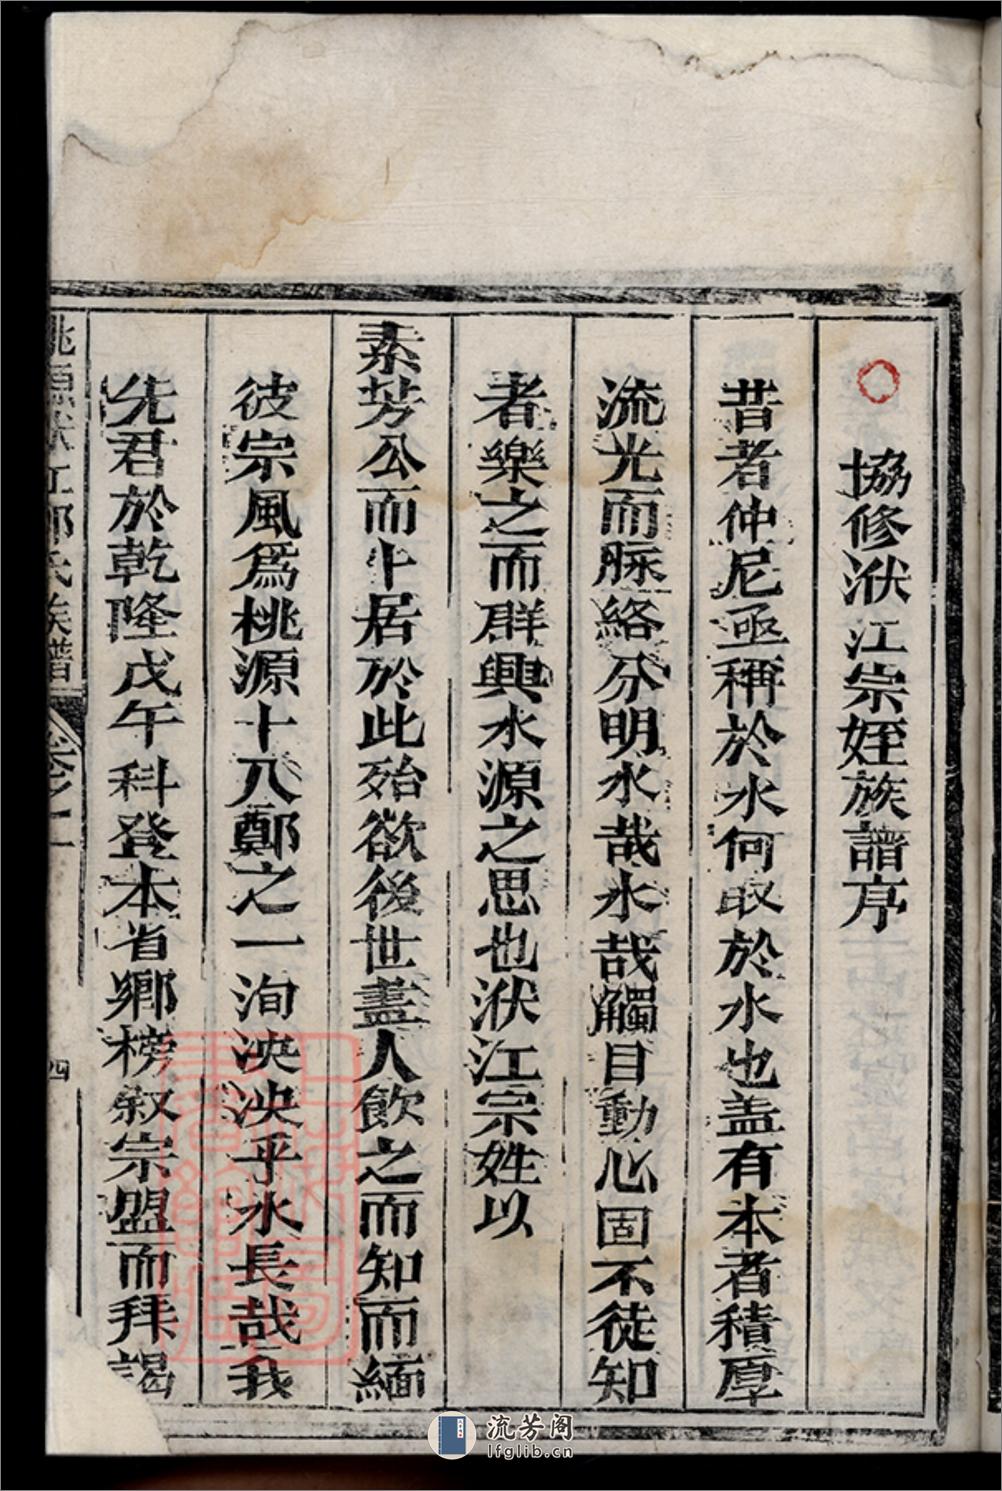 協修洑江宗姪族譜序
昔者仲尼亟稱於水何取於水也盖有本者積厚
流光而脉絡分明水哉水哉觸目動心固不徒知
者樂之而群興水源之思也洑江宗姓以
素芳公而卜居於此殆欲後世盡人飲之而知而緬
彼宗風爲桃源十八鄭之一洵泱泱乎水長哉我
先君於乾隆戊午科登本省鄉榜叙宗盟而拜謁
桃源洑江鄭氏族譜
卷之一
四
流芳阁
lfglib.cn